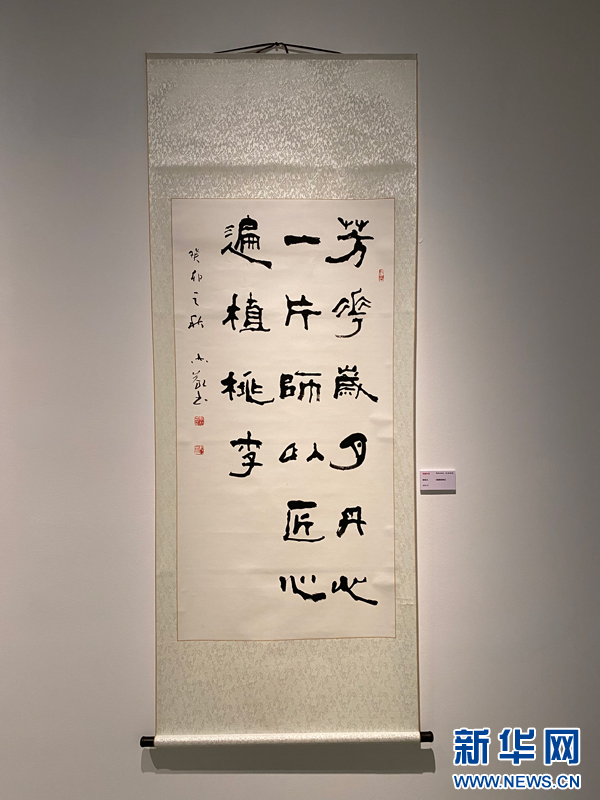 芳華歲月丹心
一片師以匠心
遍植桃李
癸卯之秋
新华网
WWW.NEWS.CN